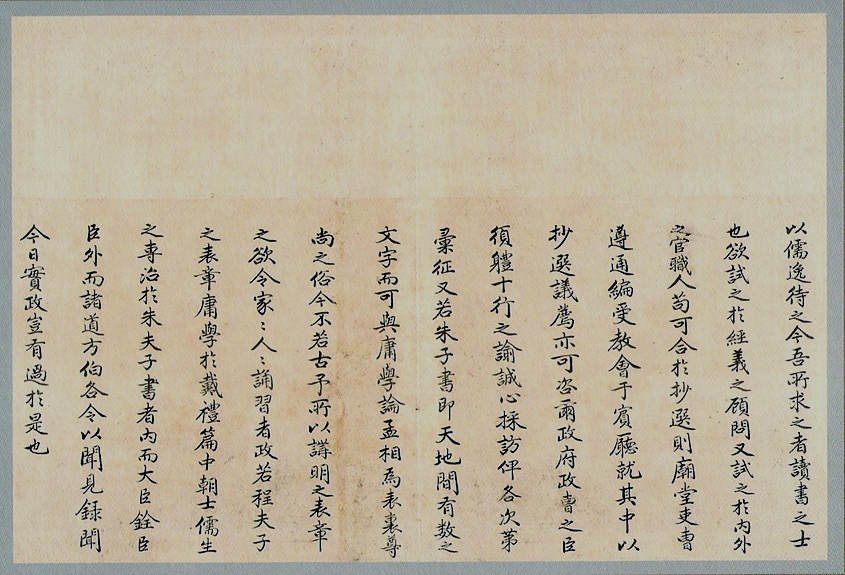 以儒逸待之今吾所求之者讀書之士
也欲試之於經義之顧問又試之於內外
之官職人苟可合於抄選則廟堂吏曹
遵通編受教會于賓廳就其中以
抄選議薦亦可咨爾政府政曹之臣
須軆十行之諭誠心採訪俾各次第
彙征又若朱子書即天地間有數之
文字而可與庸學論孟相為表裏尊
尚之俗今不若古予所以講明之表章
之欲令家〻人〻誦習者政若程夫子
之表章庸學於戴禮篇中朝士儒生
之專治於朱夫子書者內而大臣銓臣
臣外而諸道方伯各令以聞見錄聞
今日實政豈有過於是也